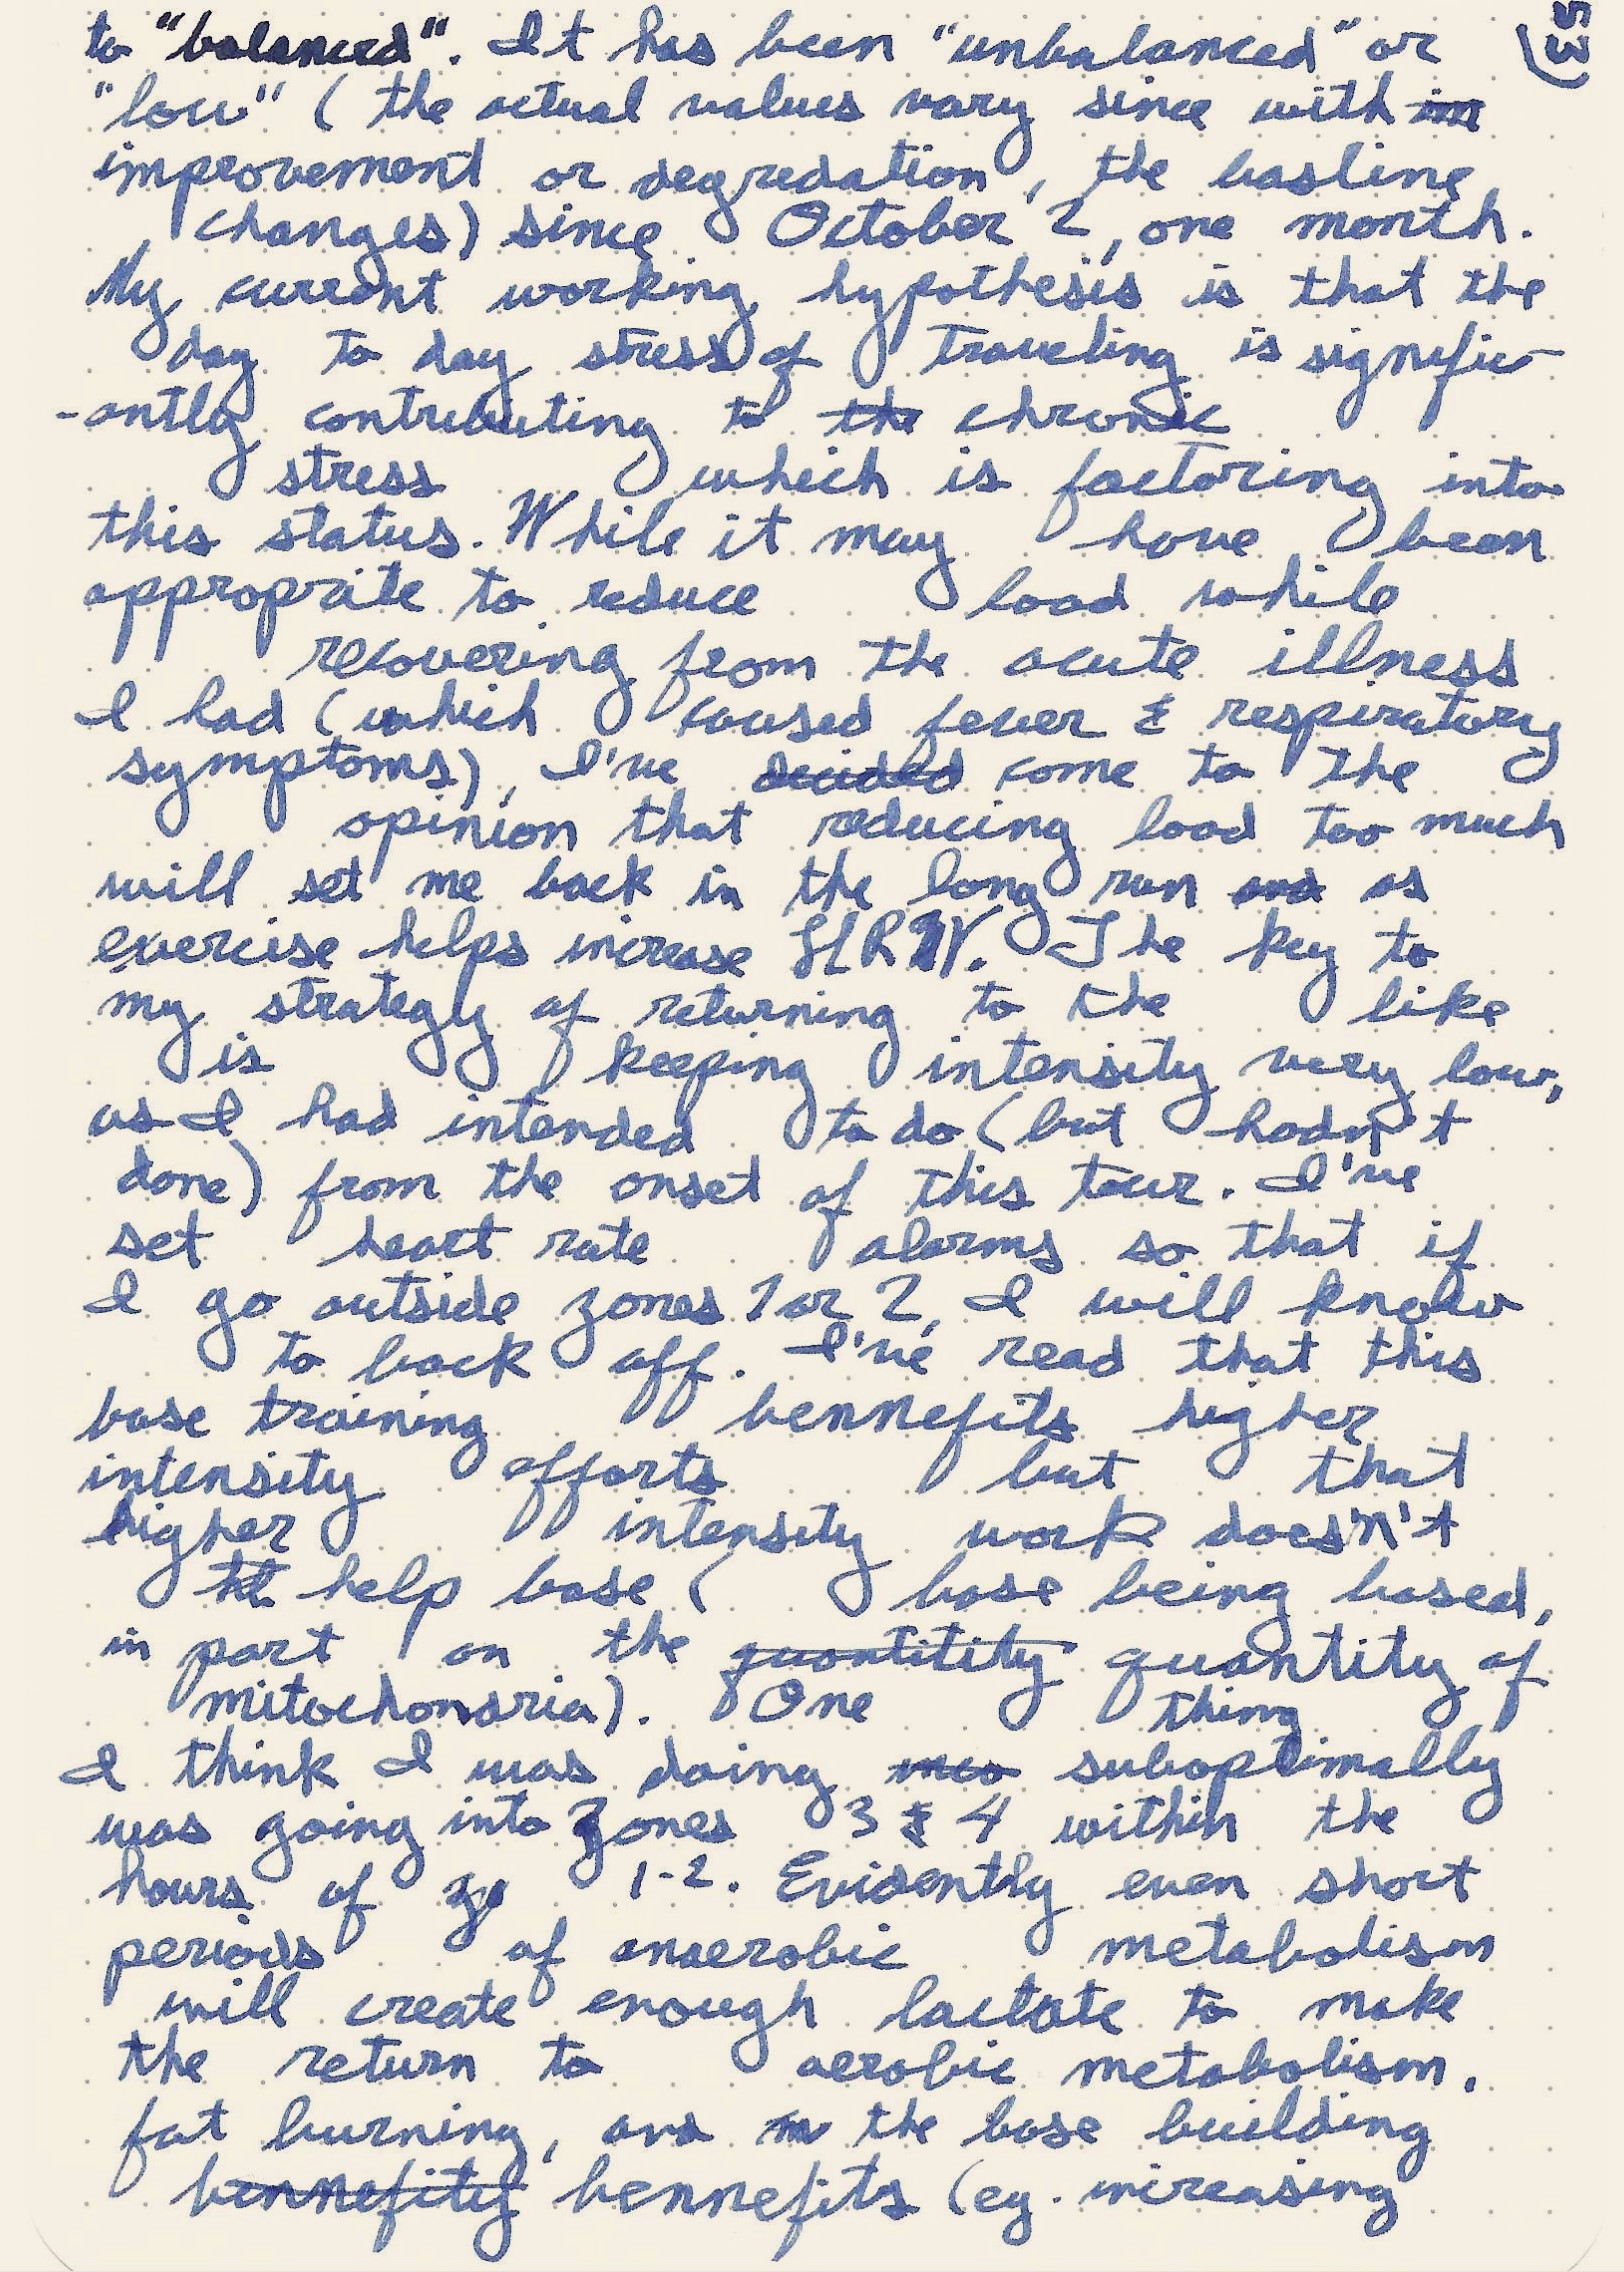 to "balanced". It has been "unbalanced" or
"low" (the actual values vary since with im
improvement or degredation, the basline
changes) since October 2, one month.
My current working hypothesis is that the
day to day stress of traveling is signific-
-antly contributing to the chronic
stress which is factoring into
this status. While it may have been
approprite to reduce load while
recovering from the acute illness
I had (which caused fever & respiratory
symptoms), I've decided come to the
opinion that reducing load too much
will set me back in the long run and as
exercise helps increase HRV. The key to
my strategy of returning to the like
is keeping intensity very low,
as I had intended to do (but hadn't
done) from the onset of this tour. I've
set heart rate alarms so that if
I go outside zones 1 or 2, I will know
to back off. I've read that this
base training bennefits higher
intensity efforts but that
higher intensity work doesn't
help base (base being based,
in part on the quontitity quantity of
mitochondria). One thing
I think I was doing suboptimally
was going into zones 3 & 4 within the
hours of 1-2. Evidently even short
periods of anaerobic metabolism
will create enough lactate to make
the return to aerobic metabolism,
fat burning, and the base building
bennefity bennefits (eg. increasing